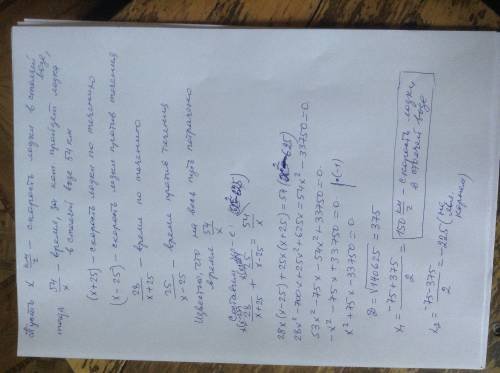 Пусть x км/ч – скорость лодки в стоячей воде,
тогда 54/x – время, за кот. пройдет лодка
в стоячей воде 54 км
(x+25) – скорость лодки по течению
(x-25) – скорость лодки против течения
28/(x+25) – время по течению
25/(x-25) – время против течения
Известно, что на весь путь потрачено
время 54/x
Составим ур-е:
28/(x+25) + 25/(x-25) = 54/x
28x(x-25)+25x(x+25)=54(x²-625)
28x²-700x+25x²+625x=54x²-33750=0
53x²-75x-54x²+33750=0
-x²-75x+33750=0 |·(-1)
x²+75x-33750=0
D=√140625=375
x₁=(-75+375)/2=150 км/ч – скорость лодки
в стоячей воде
x₂=(-75-375)/2=-225